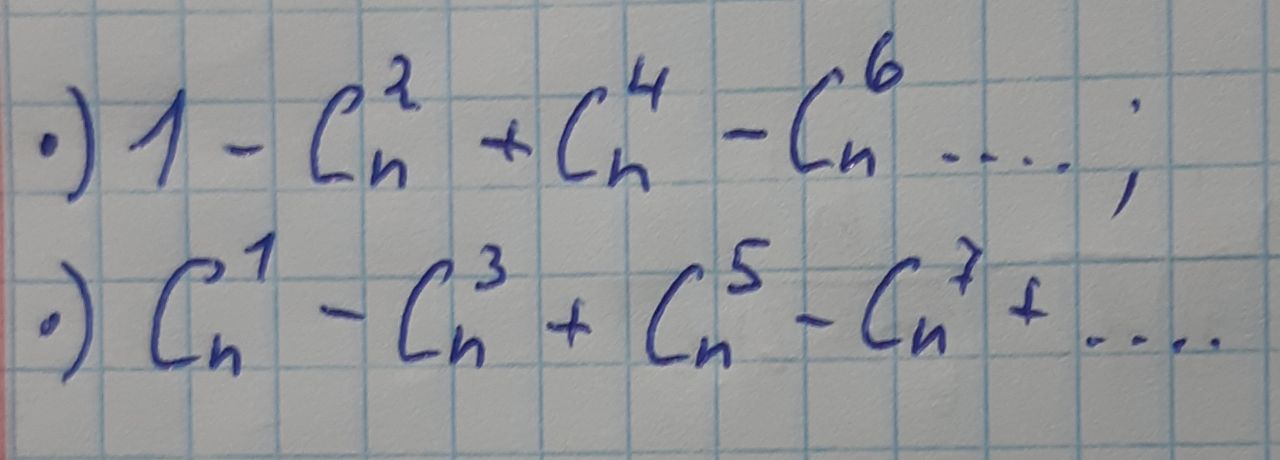 •) 1 - C_n^2 + C_n^4 - C_n^6 .... ;
•) C_n^1 - C_n^3 + C_n^5 - C_n^7 + ....